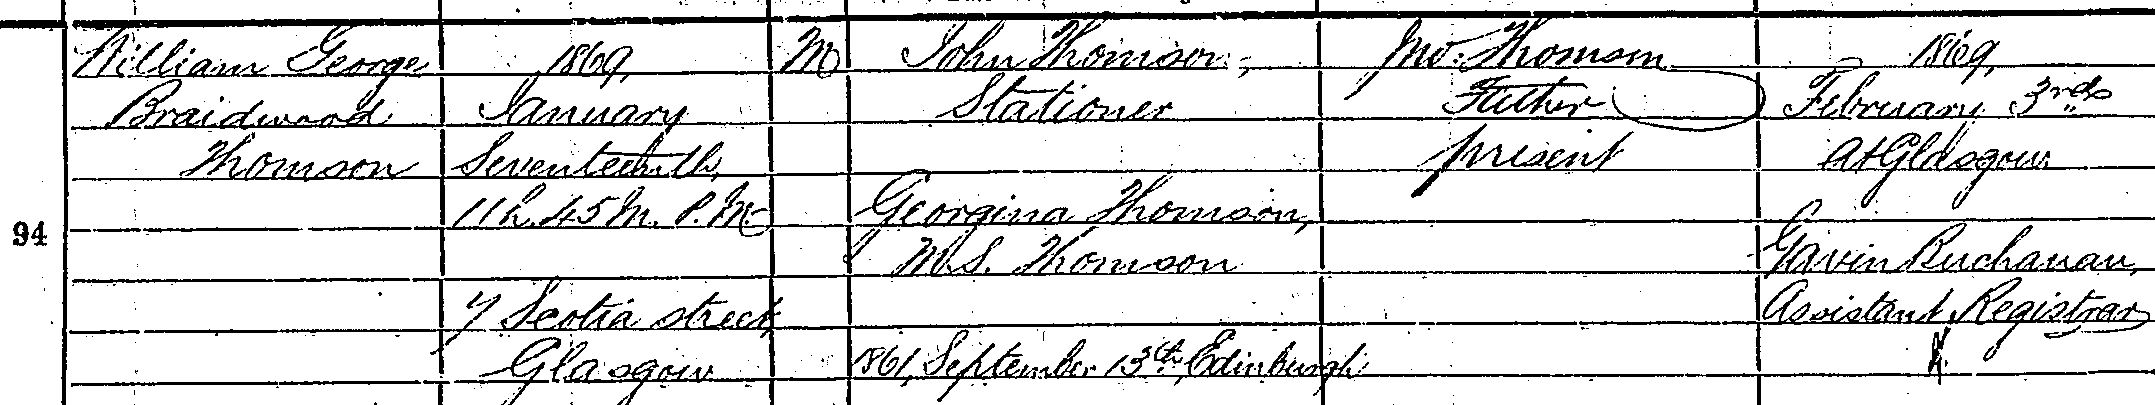 94
William George
Braidwood
Thomson
1869,
January
Seventeenth,
11h. 45 M. P.M.
7 Scotia street,
Glasgow
M
John Thomson,
Stationer
Georgina Thomson,
M.S. Thomson
1861, September 13th, Edinburgh
Jno. Thomson
Father
present
1869,
February 3rd
At Glasgow
Gavin Buchanan,
Assistant Registrar